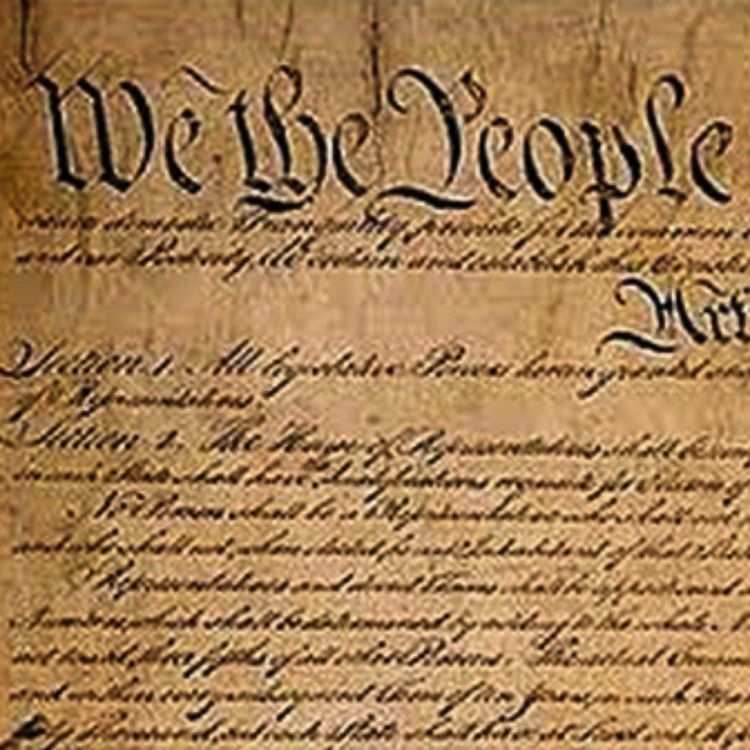 We the People
insure domestic Tranquility, provide for the common
and our Posterity, do ordain and establish this Constit
Art
Section. 1. All legislative Powers herein granted
of Representatives.
Section. 2. The House of Representatives shall be com
in each State shall have Qualifications requisite for Electors of
No Person shall be a Representative who shall not
and who shall not, when elected, be an Inhabitant of that State
Representatives and direct Taxes shall be apportioned
Numbers, which shall be determined by adding to the whole N
not taxed, three fifths of all other Persons. The actual Enume
and within every subsequent Term of ten Years, in such Man
thirty Thousand, but each State shall have at Least one